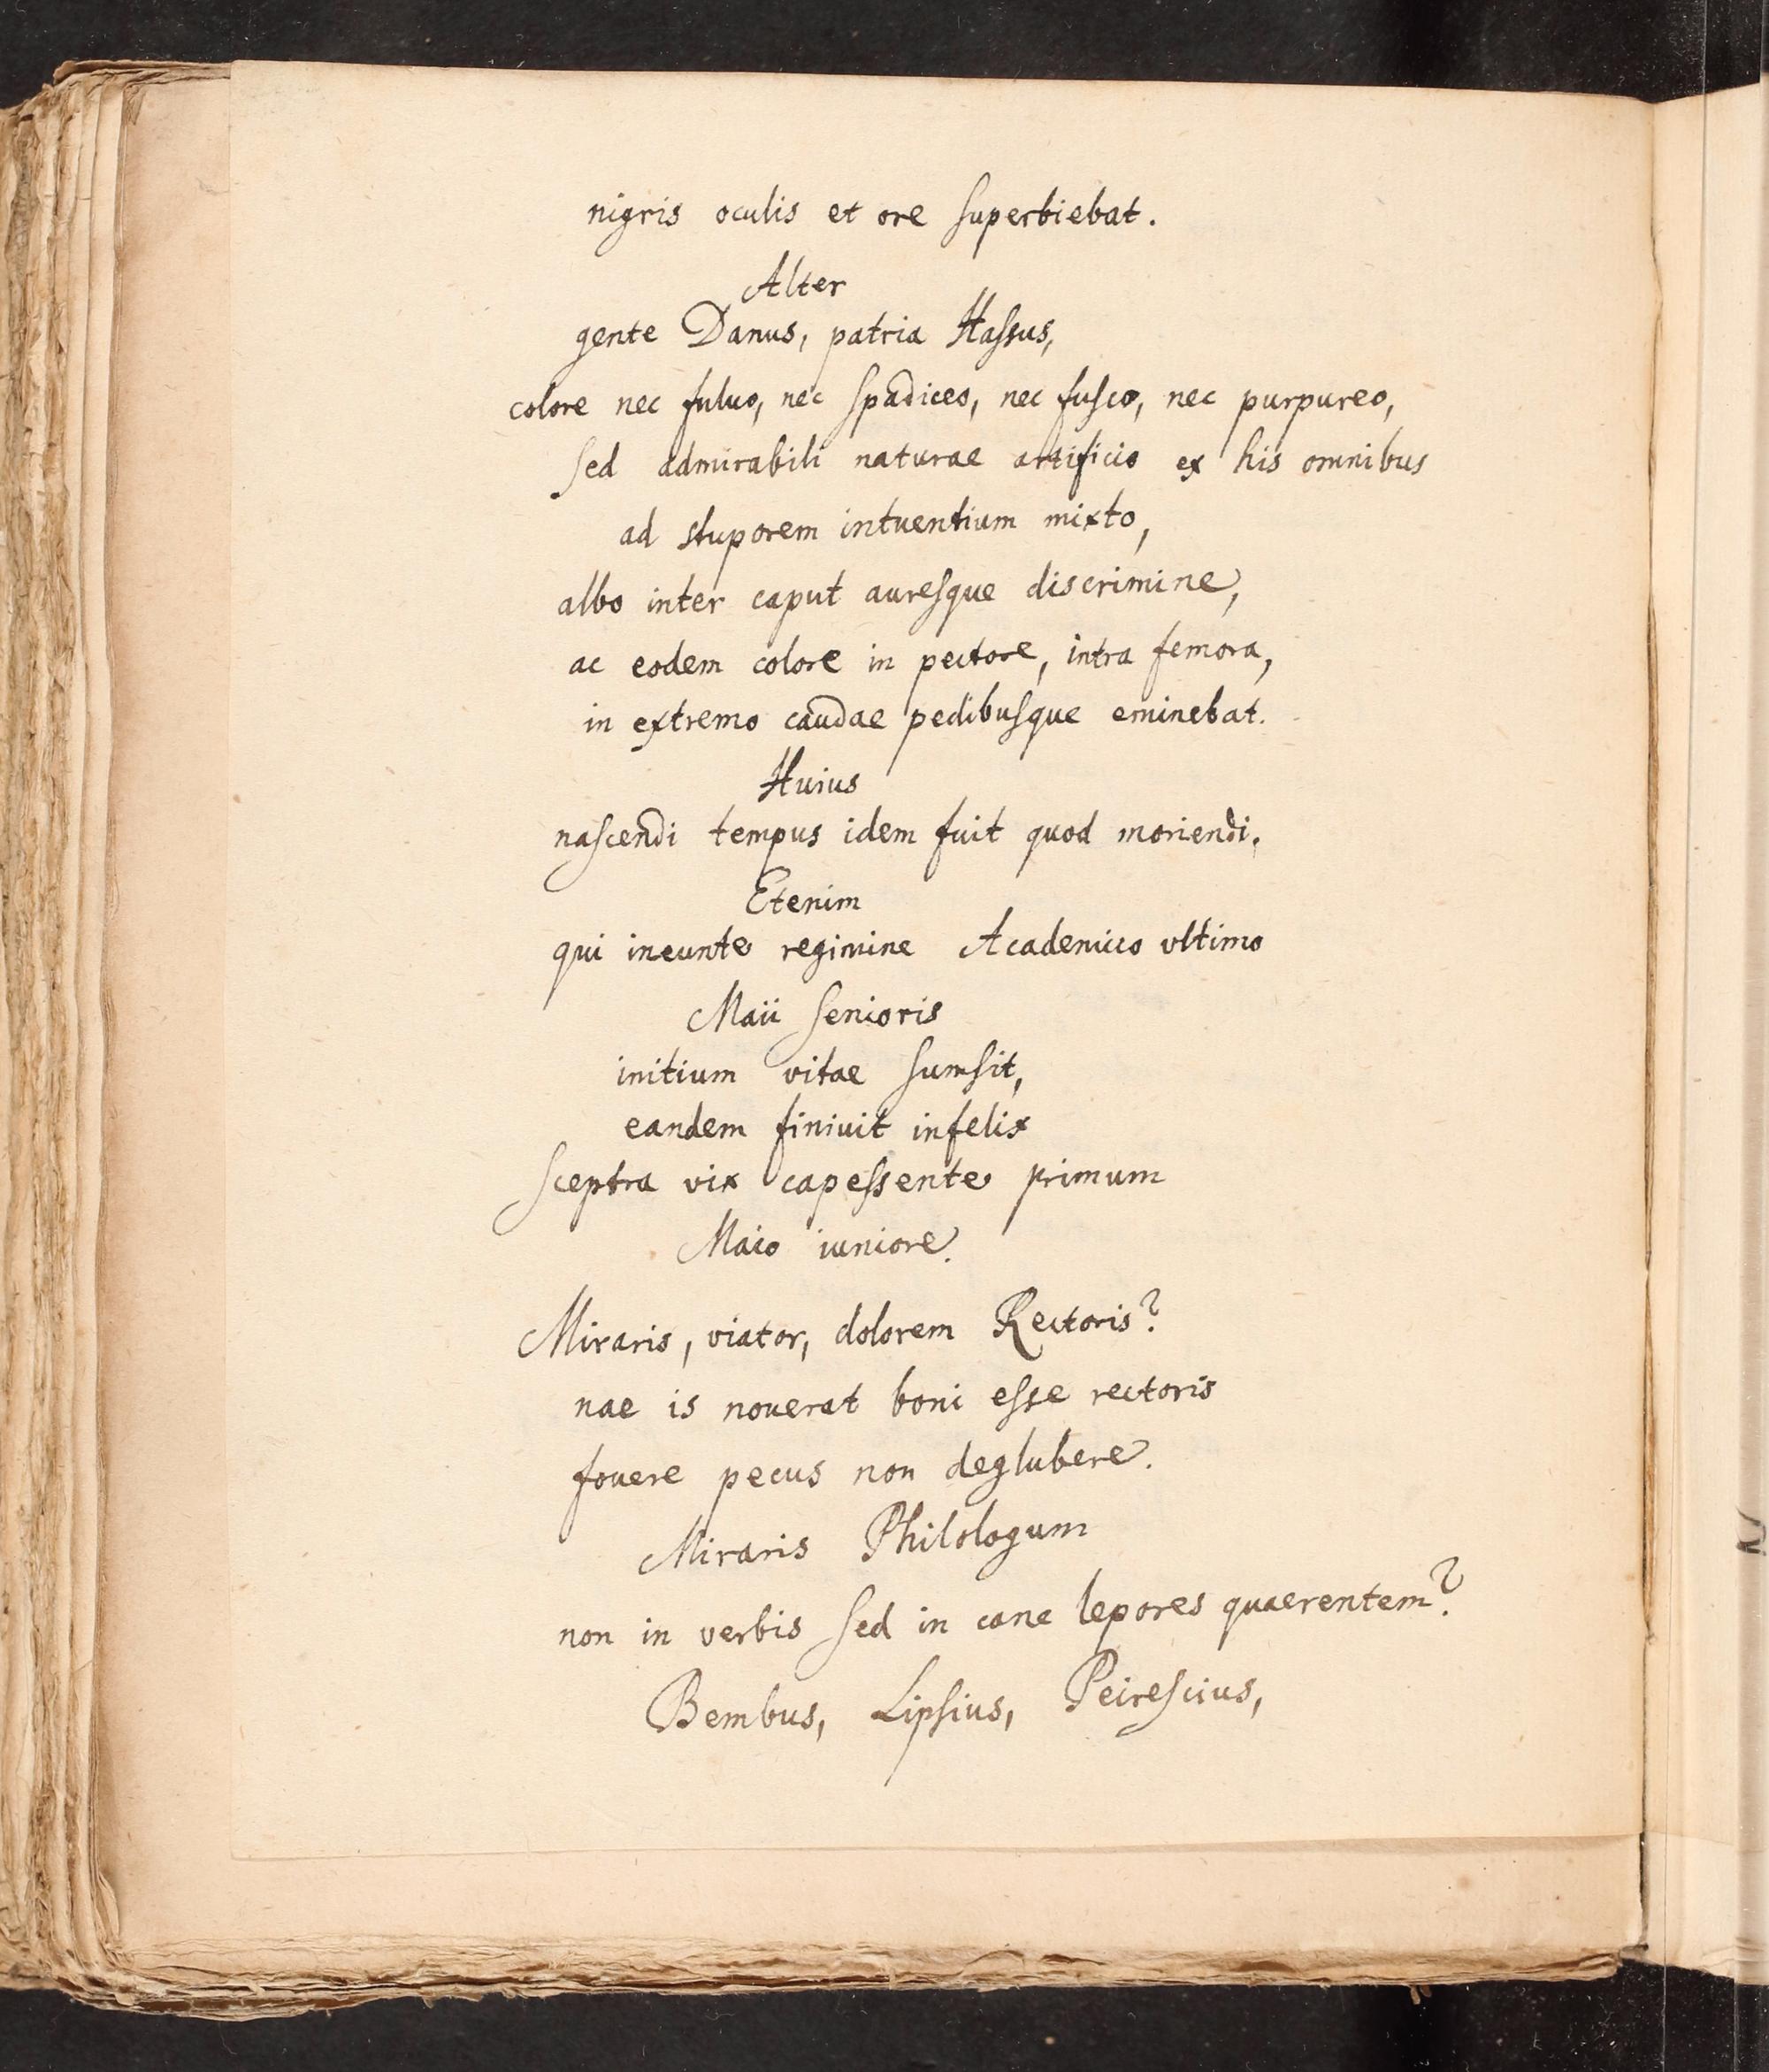 nigris oculis et ore superbiebat.
Alter
gente Danus, patria Hassus,
colore nec fuluo, nec spadiceo, nec fusco, nec purpureo,
sed admirabili naturae artificio ex his omnibus
ad stuporem intuentium mixto,
albo inter caput auresque discrimine,
ac eodem colore in pectore, intra femora,
in extremo caudae pedibusque eminebat.
Huius
nascendi tempus idem fuit quod moriendi.
Etenim
qui ineunte regimine Academico vltimo
Maii senioris
initium vitae sumsit,
eandem finiuit infelix
sceptra vix capessente primum
Maio iuniore.
Miraris, viator, dolorem Rectoris?
nae is nouerat boni esse rectoris
fouere pecus non deglubere.
Miraris Philologum
non in verbis sed in cane lepores quaerentem?
Bembus, Lipsius, Peirescius,